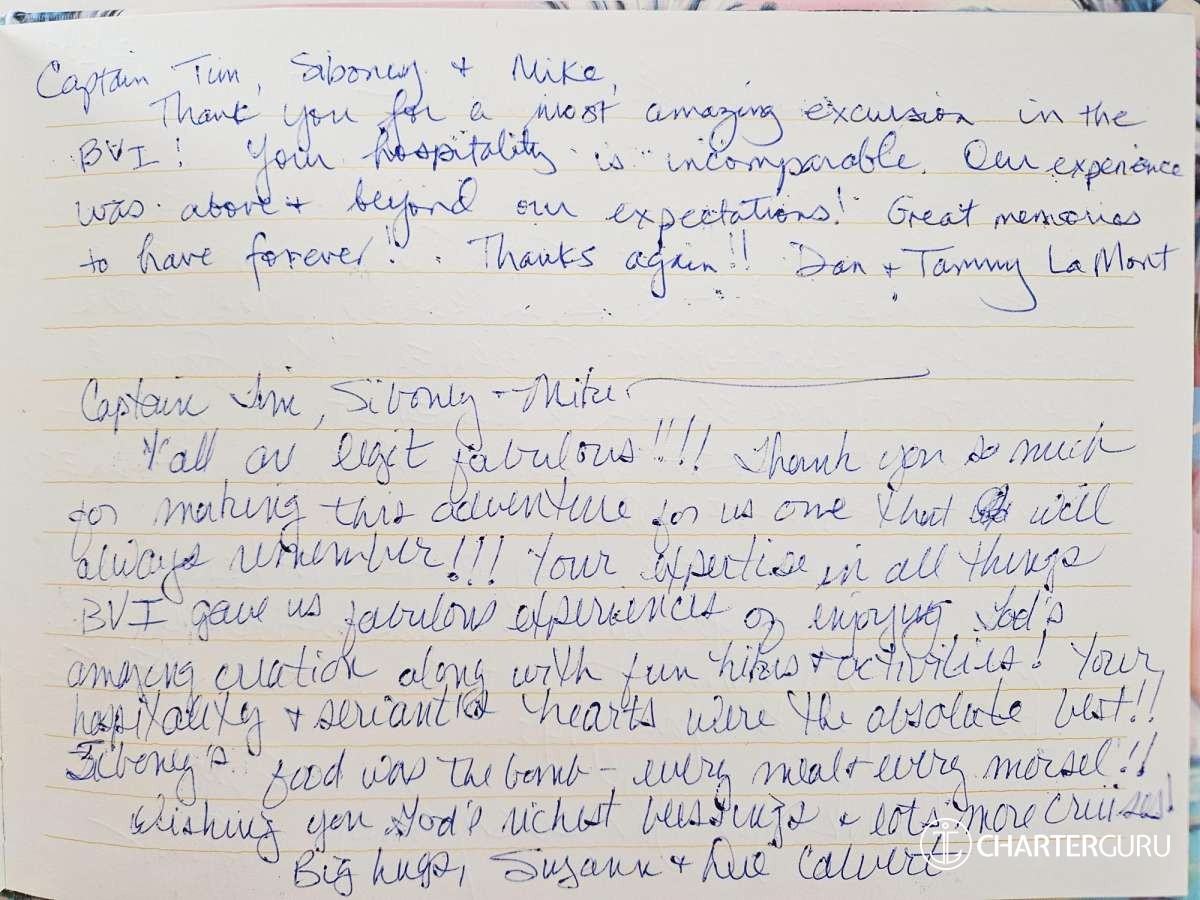 Captain Tim, Siboney + Mike,
Thank you for a most amazing excursion in the
BVI! Your hospitality is incomparable. Our experience
was above + beyond our expectations! Great memories
to have forever! Thanks again!! Dan + Tammy LaMont
Captain Tim, Siboney + Mike
Y'all are legit fabulous!!!! Thank you so much
for making this adventure for us one that will
always remember!!! Your expertise in all things
BVI gave us fabulous experiences of enjoying God's
amazing creation along with fun hikes + activities! Your
hospitality + servant hearts were the absolute best!!
Siboney's food was the bomb - every meal + every morsel!!
Wishing you God's richest blessings + lots more cruises!
Big hugs, Suzann + Calvert
CHARTERGURU